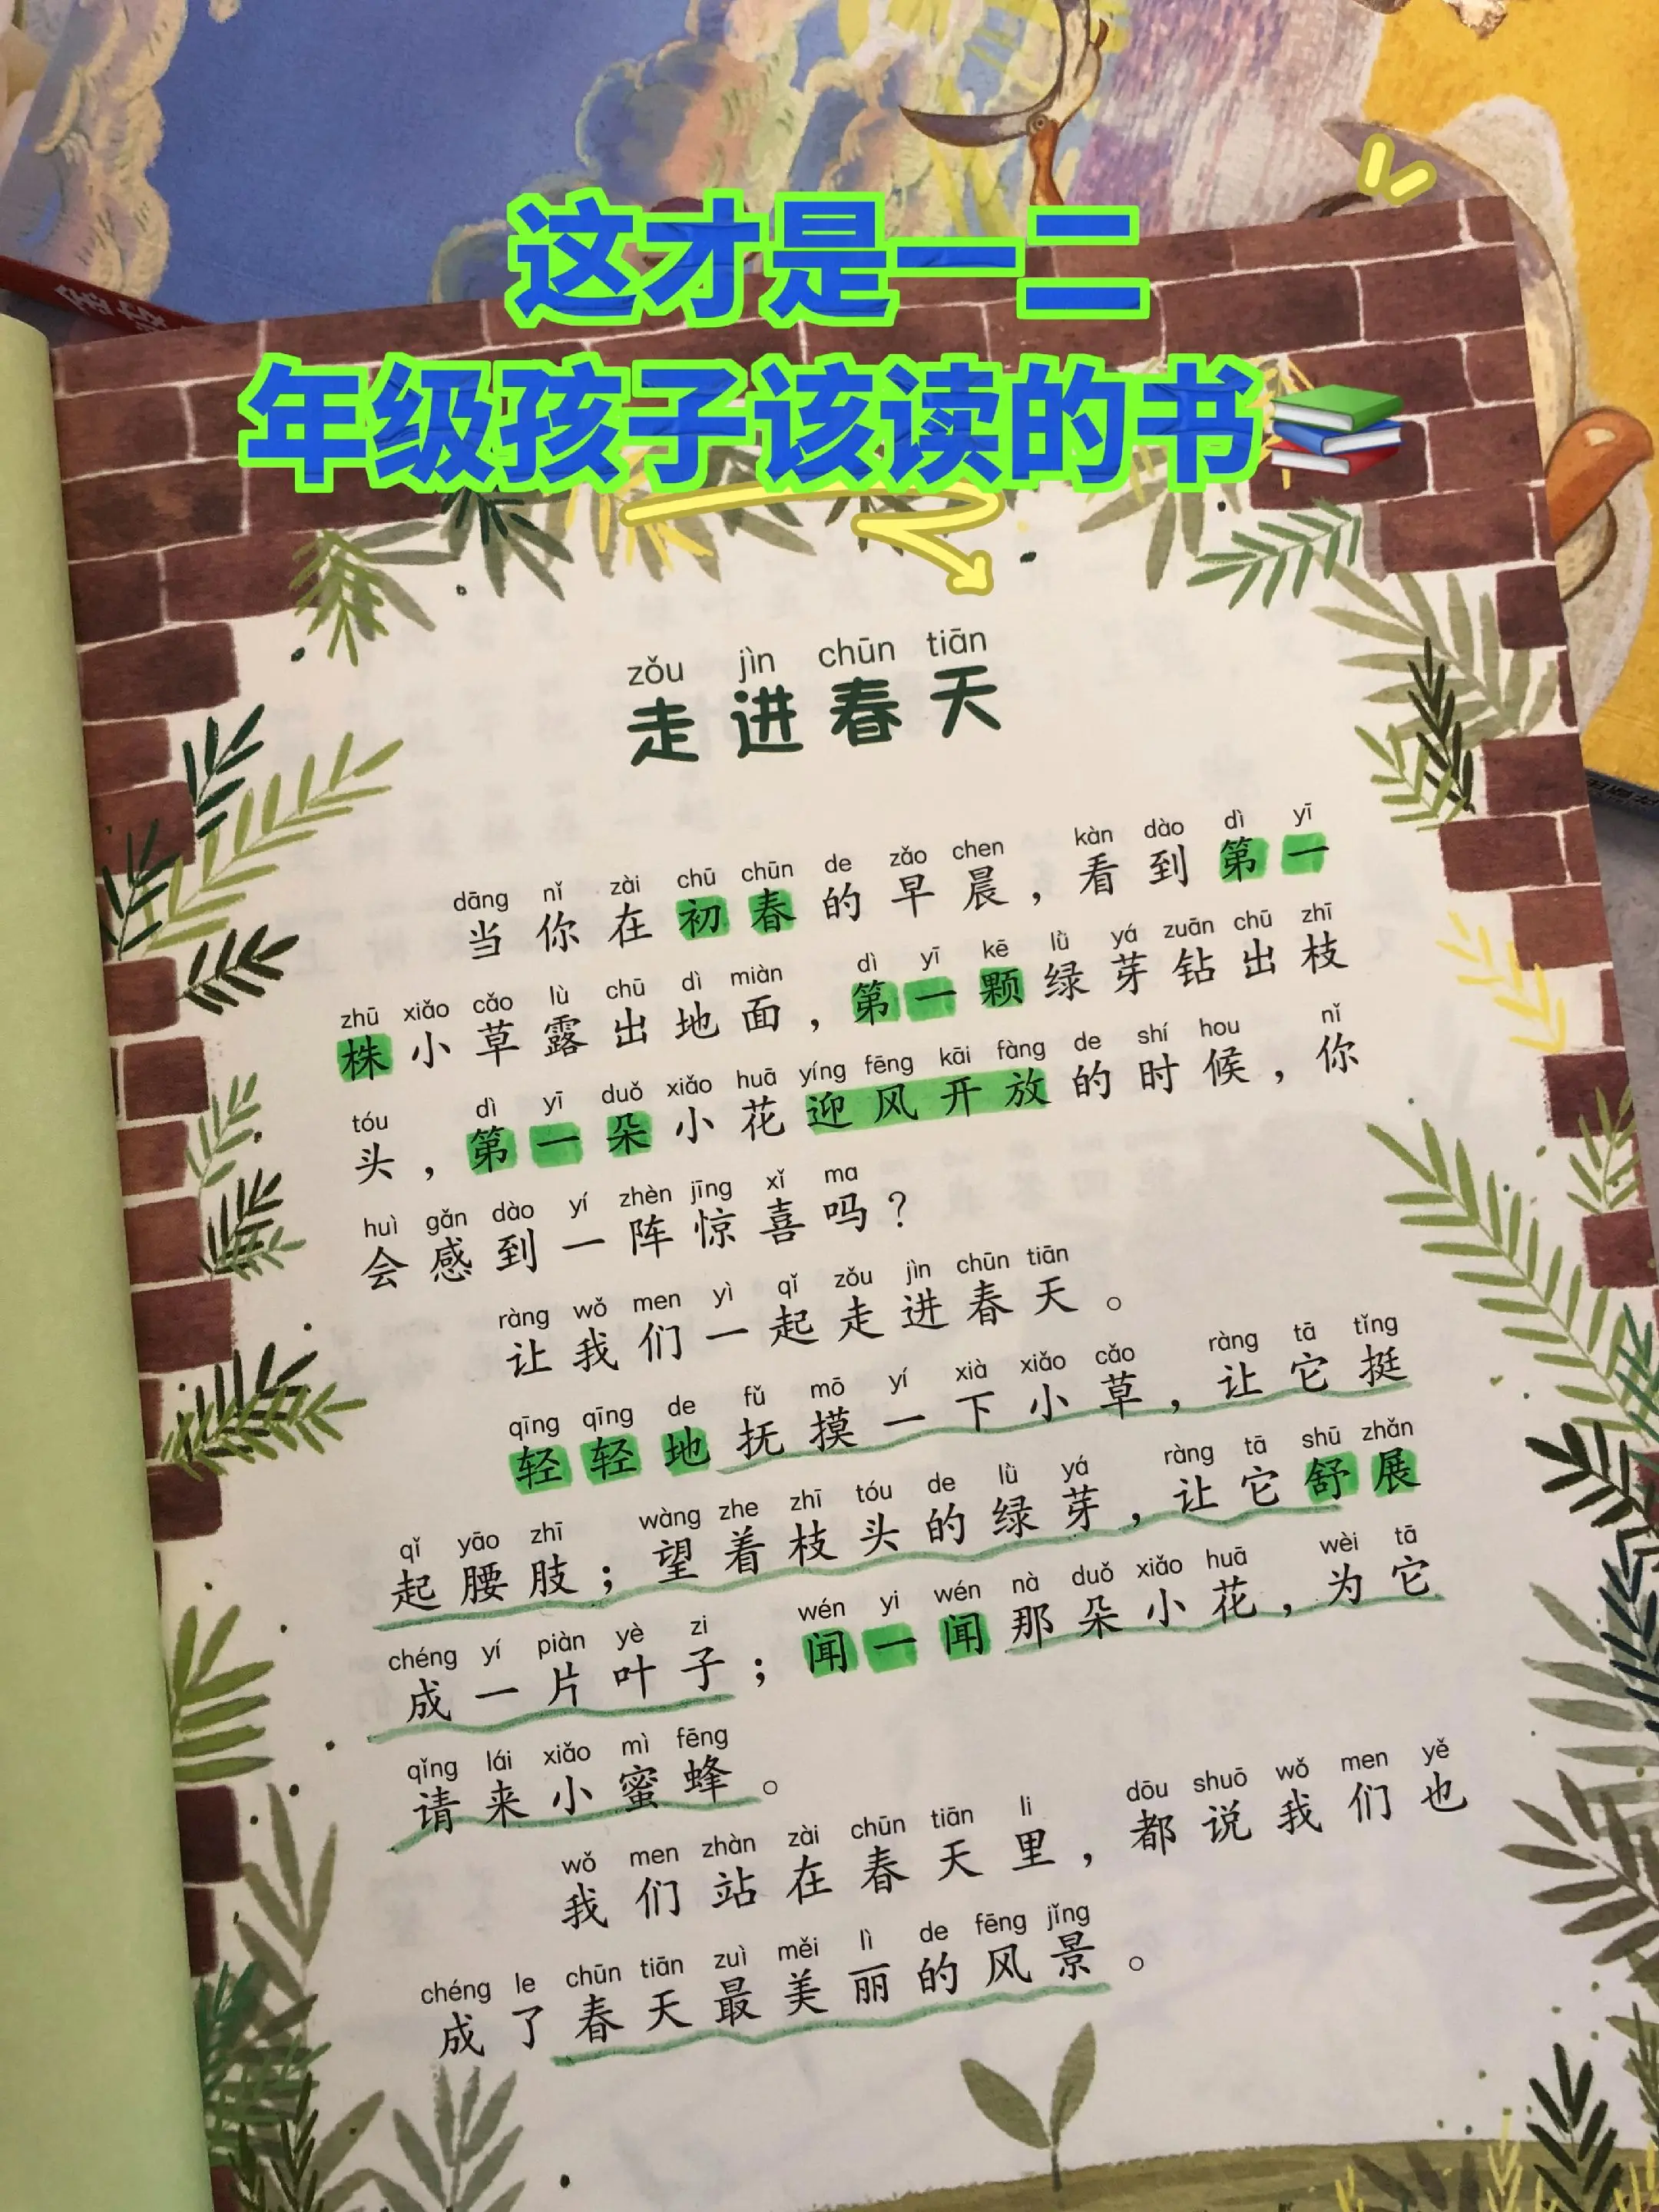 这才是一二
年级孩子该读的书
zǒu jìn chūn tiān
走进春天
dāng nǐ zài chū chūn de zǎo chen kàn dào dì yī
当你在初春的早晨，看到第一
zhū xiǎo cǎo lù chū dì miàn dì yī kē lǜ yá zuān chū zhī
株小草露出地面，第一颗绿芽钻出枝
tóu dì yī duǒ xiǎo huā yíng fēng kāi fàng de shí hou nǐ
头，第一朵小花迎风开放的时候，你
huì gǎn dào yí zhèn jīng xǐ ma
会感到一阵惊喜吗？
ràng wǒ men yì qǐ zǒu jìn chūn tiān
让我们一起走进春天。
qīng qīng de fǔ mō yí xià xiǎo cǎo ràng tā tǐng
轻轻地抚摸一下小草，让它挺
qǐ yāo zhī wàng zhe zhī tóu de lǜ yá ràng tā shū zhǎn
起腰肢；望着枝头的绿芽，让它舒展
chéng yí piàn yè zi wén yi wén nà duǒ xiǎo huā wèi tā
成一片叶子；闻一闻那朵小花，为它
qǐng lái xiǎo mì fēng
请来小蜜蜂。
wǒ men zhàn zài chūn tiān li dōu shuō wǒ men yě
我们站在春天里，都说我们也
chéng le chūn tiān zuì měi lì de fēng jǐng
成了春天最美丽的风景。